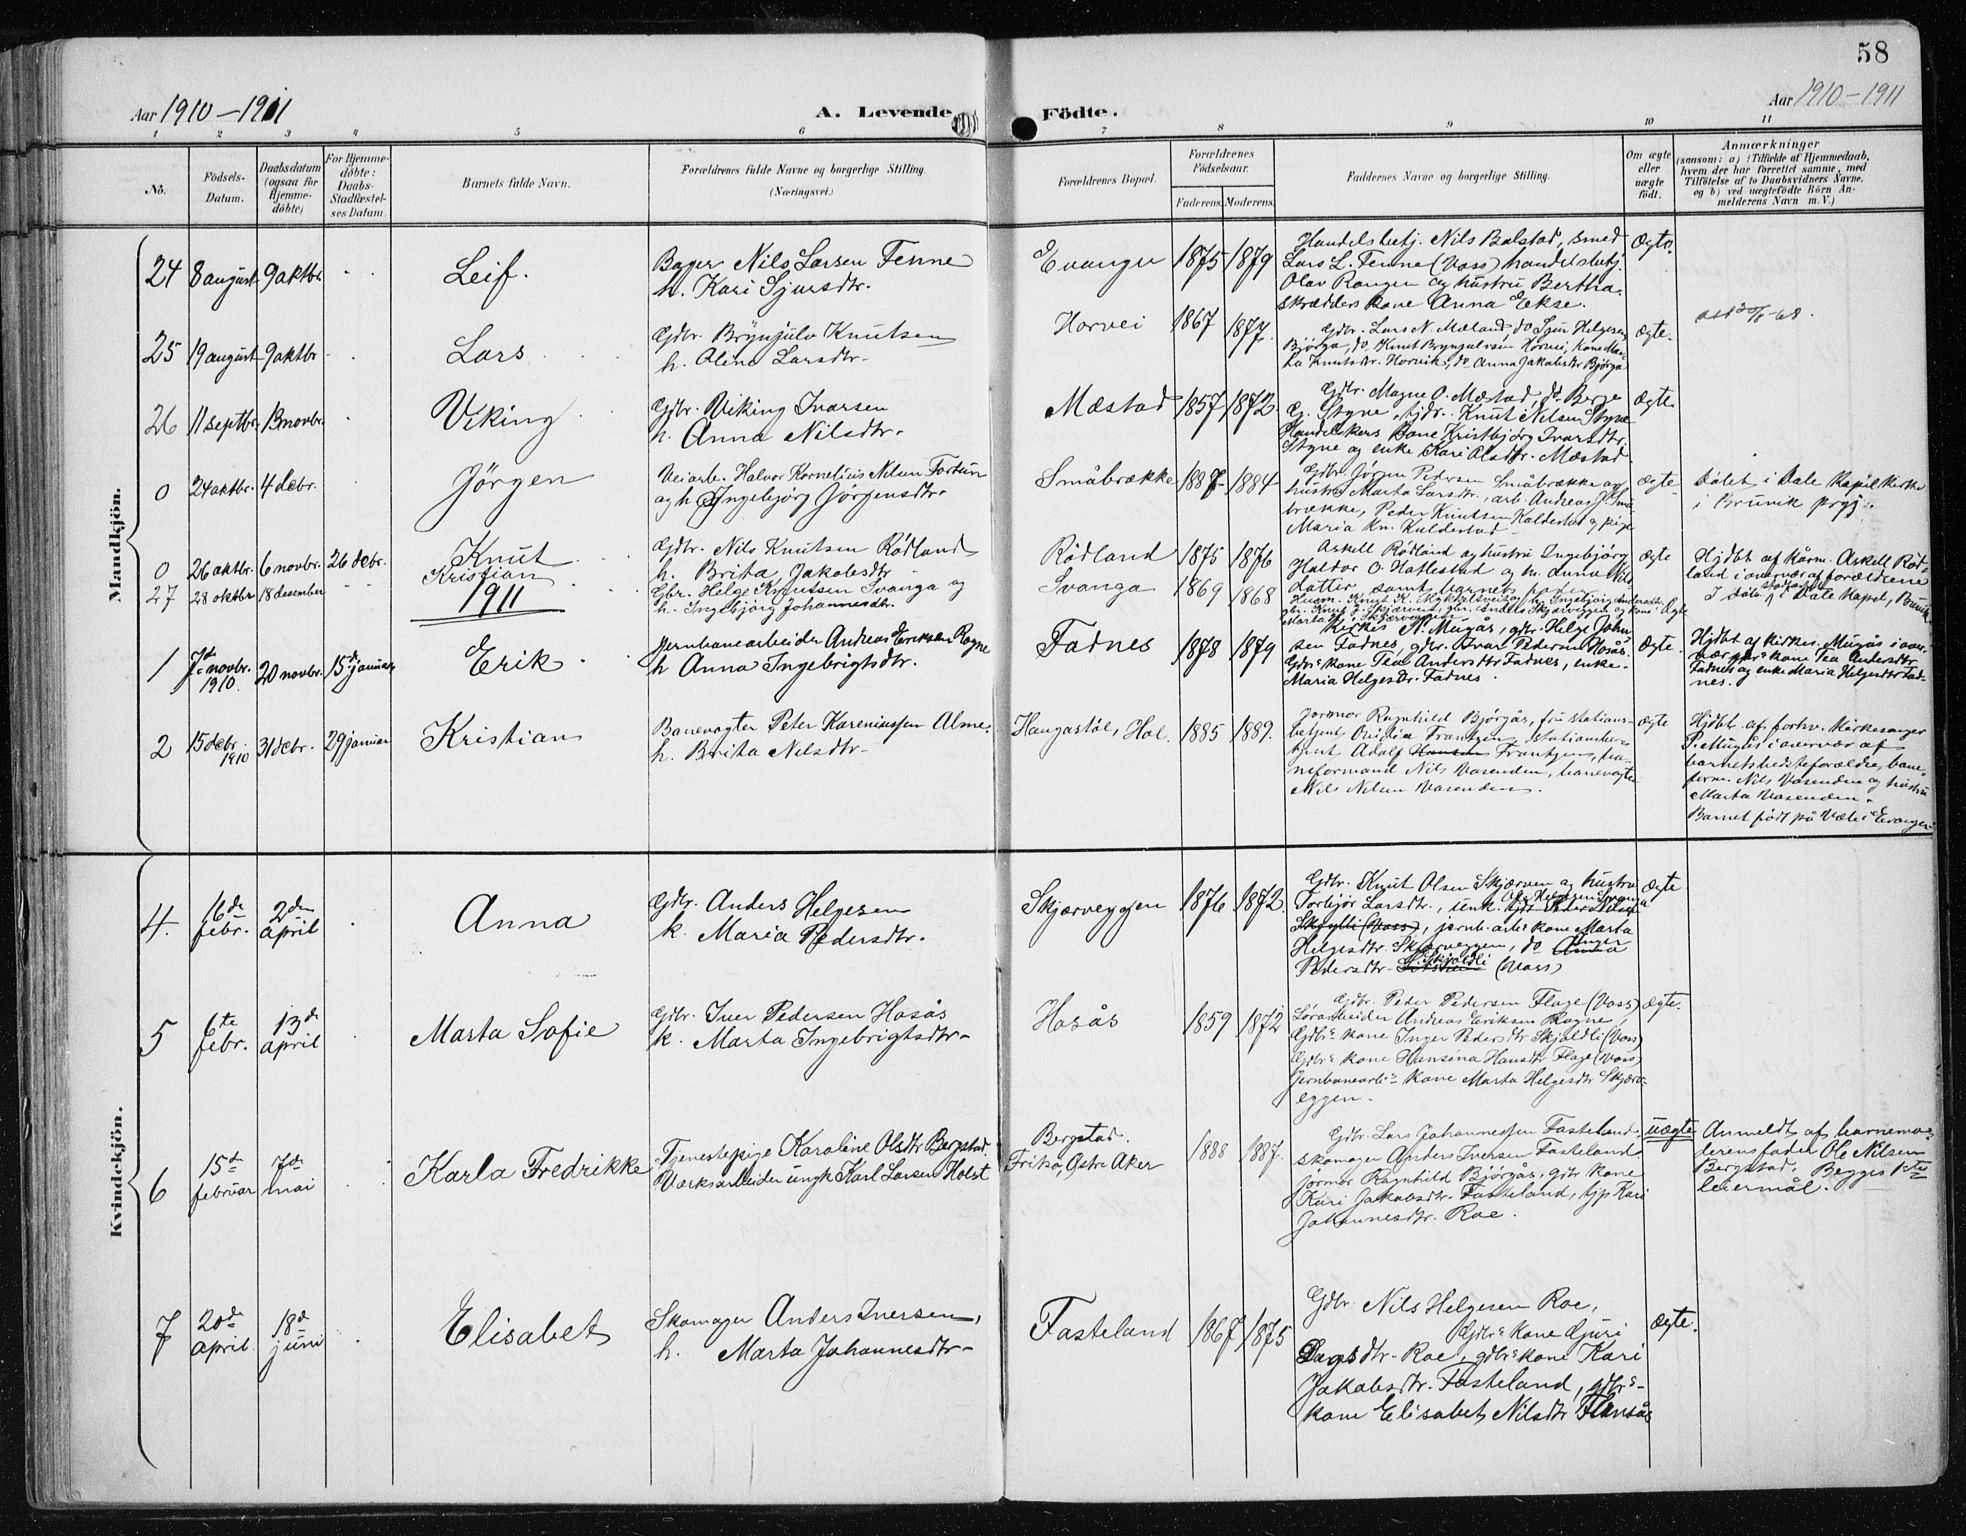 58
Aar 1910-1911
A. Levende Födte.
Aar 1910-1911
1 2 3 4 5 6 7 8 9 10 11
No.
Födsels-Datum.
Daabsdatum (ogsaa for Hjemme-döbte)
For Hjemme-döbte: Daabs-Stadfæstel-ses Datum.
Barnets fulde Navn.
Forældrenes fulde Navne og borgerlige Stilling.
(Næringsvei.)
Forældrenes Bopæl.
Forældrenes Födselsaar.
Faderens. Moderens.
Faddrenes Navne og borgerlige Stilling.
Om ægte eller uægte födt.
Anmærkninger
(saasom: a) i Tilfælde af Hjemmedaab,
hvem der har forrettet samme, med
Tilföielse af to Daabsvidners Navne.
og b) ved uægtefödte Börn An-
melderens Navn m. V.)
Mandkjön.
24 8 august 9 aktbr. Leif.
Bager Nils Larsen Fenne
h. Kari Sjursdtr.
Evanger 1875 1879
Handelsbetj. Nils Balstad, smed
Lars L. Fenne (Voss) handelsbetj.
Olav Rangen og hustru Bertha.
skrædders kone Anna Ekse.
ægte.
25 19 august 9 aktbr Lars
Gdbr. Brynjulv Knutsen
h. Alina Larsdtr.
Horvei 1867 1877
Gdbr. Lars N. Mæland, do Sjur Helgesen
Bjørga, do. Knut Brynjulvsen Horvei, kone
Knutsdtr. Horvik, do Anna Jakobsdtr Bjørga
ægte.
26 11 septbr. 13 novbr. Viking
Gdbr. Viking Ivarsen
h. Anna Nilsdtr.
Mæstad 1857 1872
Gdbr. Magne O. Mæstad, do. Berge
Styve, tjdr. Knut Nilsen Styve
Kristbjörg Ivarsdtr.
Styve og enke Kari Olsdtr. Mæstad
ægte
0 24 aktbr. 4 debr. Jörgen
Veiarb. Halvor Kornelius Nilsen Fortun
og h. Ingebjörg Jörgensdtr.
Småbrække 1887 1884
Gdbr. Jörgen Pedersen Småbrække og
hustru Marta Larsdtr., arb. Andreas J. Små
brække, Peder Knutsen Kaldestad og pige
Maria Kn. Kaldestad
ægte
Döbt i Dale kapel kirke
i Bruvik prgj.
0 26 aktbr. 6 novbr. 26 debr. Knut
Gdbr. Nils Knutsen Rødland
h. Brita Jakobsdtr
Rødland 1875 1876
Askell Rødland og hustru Ingebjörg
Haldor O. Hatlestad og h. Anna
samt barnets
ægte
Hjdbt af Askell Rød-
land i overvær af forældrene
27 28 oktbr 18 desember Kristian
Gbr. Helge Knutsen Svanga og
h. Ingebjörg Johannesdtr.
Svanga 1869 1868
Ægte
I døbt i Dale Kapel, Bruvik
1911
1 7d novbr. 1910. 20 novbr. 15d januar Erik
Jernbanearbeider Andreas Eriksen Rogne
h Anna Ingebrigtsdtr.
Fadnes 1878 1879
Kirkes. N. Mugås, gdbr. Helge John-
sen Fadnes, gdbr. Ivar Pedersen Hosås.
Gdbrs kone Tea Andersdtr Fadnes, enke
Maria Helgesdtr. Fadnes.
ægte.
Hjdbt af kirkes. Mugås i over-
vær kone Tea Andersdtr
Fadnes og enke Maria Helgesdtr Fad-
nes.
2 15 debr. 1910 31 debr. 29 januar Kristian
Banevogter Peter Kareniussen Alme.
h. Brita Nilsdtr
Haugastøl, Hol. 1885 1889.
Jormor Ragnhild Bjørgås, fru stations-
betjent Frantzen, stationsbe-
tjent Adolf Hansen Frantzen, ba-
neformand Nils Vasenden, banevogter
Nils Nilsen Vasenden.
ægte
Hjdbt af forhv. Kirkesanger
P. Mugås i overvær af
barnets bedsteforældre, bane-
form. Nils Vasenden og hustru
Marta Vasenden.
Barnet født på Væle i Evanger.
Kvindekjön.
4. 16de febr. 2den april Anna
Gdbr. Anders Helgesen
k. Maria Pedersdtr.
Skjærveggen 1876 1872.
Gdbr. Knut Olsen Skjerven og hustru
Torbjör Larsdtr.,
Skjylli (Voss), jernb. arbs kone Marta
Helgesdtr. Skjærveggen, do Anna Inger
Pedersdtr. Skjældli (Voss)
ægte
5 6te febr. 13d april Marta Sofie
Gdbr. Iver Pedersen Hosås
k. Marta Ingebrigtsdtr
Hosås 1859 1872
Gdbr. Peder Pedersen Flage (Voss)
Andreas Eriksen Rogne
Gdbrs kone Inger Pedersdtr Skjældli (Voss)
Gdbrs kone Hansina Hansdtr Flage (Voss)
Jernbanearbs kone Marta Helgesdtr Skjærv-
eggen.
ægte.
6 15de februar 7de mai Karla Fredrikke
Tjenestepige Karoline Olsdtr Bergstad.
Værksarbeider ungk Karl Larsen Holst
Bergstad.
Friksø, Østre Aker 1888 1887.
Gdbr. Lars Johannessen Fasteland.
Skomager Anders Iversen Fasteland
Jormor Ragnhild Bjørgås, gdbr kone
Kari Jakobsdtr. Fasteland, tjp Kari
Johannesdtr. Roe.
uægte
Anmeldt af barnemo-
derens fader Ole Nilsen
Bergstad. Begges 1ste
leiermål.
7 20de april 18d juni Elisabet
Skomager Anders Iversen,
h. Marta Johannesdtr
Fasteland 1867 1875
Gdbr. Nils Helgesen Roe,
Gdbrs kone Guri
Dagsdtr. Roe, gdbrs kone Kari
Jakobsdtr. Fasteland, gdbrs-
kone Elisabet Nilsdtr
ægte.